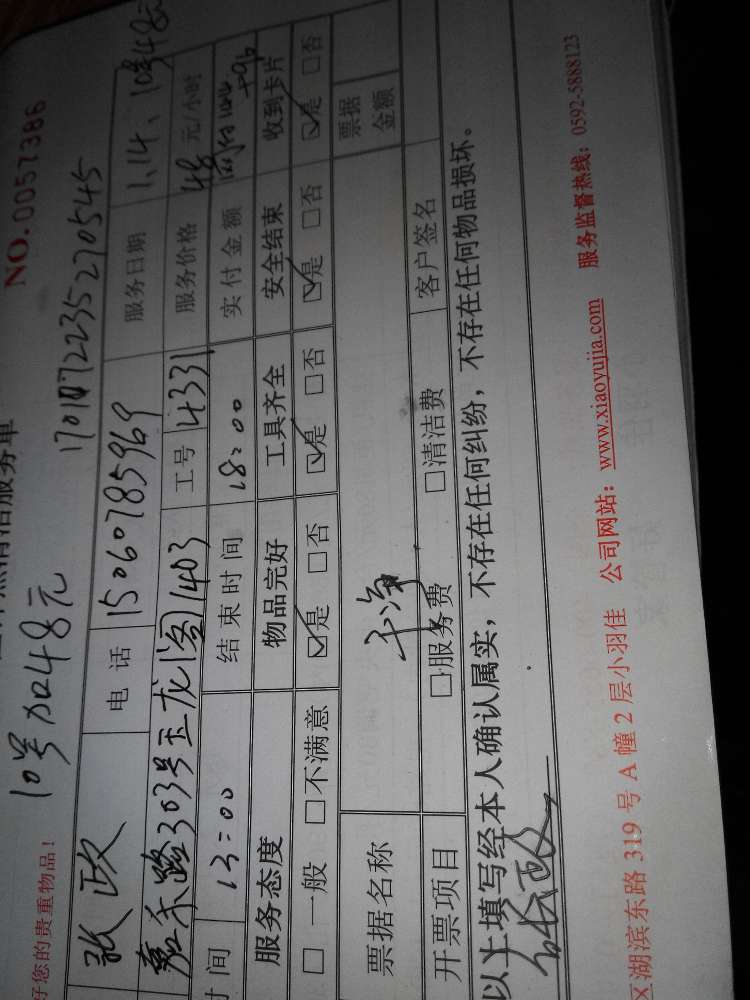 清洁服务单 NO.0057386
好您的贵重物品! 10号加48元
张政 电话 15060785969 服务日期 1.14、10号48元
嘉禾路303号玉龙阁1403 工号 4331 服务价格 48 元/小时
时间 13:00 结束时间 18:00 实付金额
服务态度 物品完好 工具齐全 安全结束 收到卡片
□ 一般 □不满意 ☑是 □否 ☑是 □否 ☑是 □否 ☑是 □否
票据名称 干净 票据金额
开票项目 □服务费 □清洁费 客户签名
以上填写经本人确认属实,不存在任何纠纷,不存在任何物品损坏。
张政
区湖滨东路 319 号 A 幢 2 层小羽佳 公司网站:www.xiaoyujia.com 服务监督热线:0592-5888123